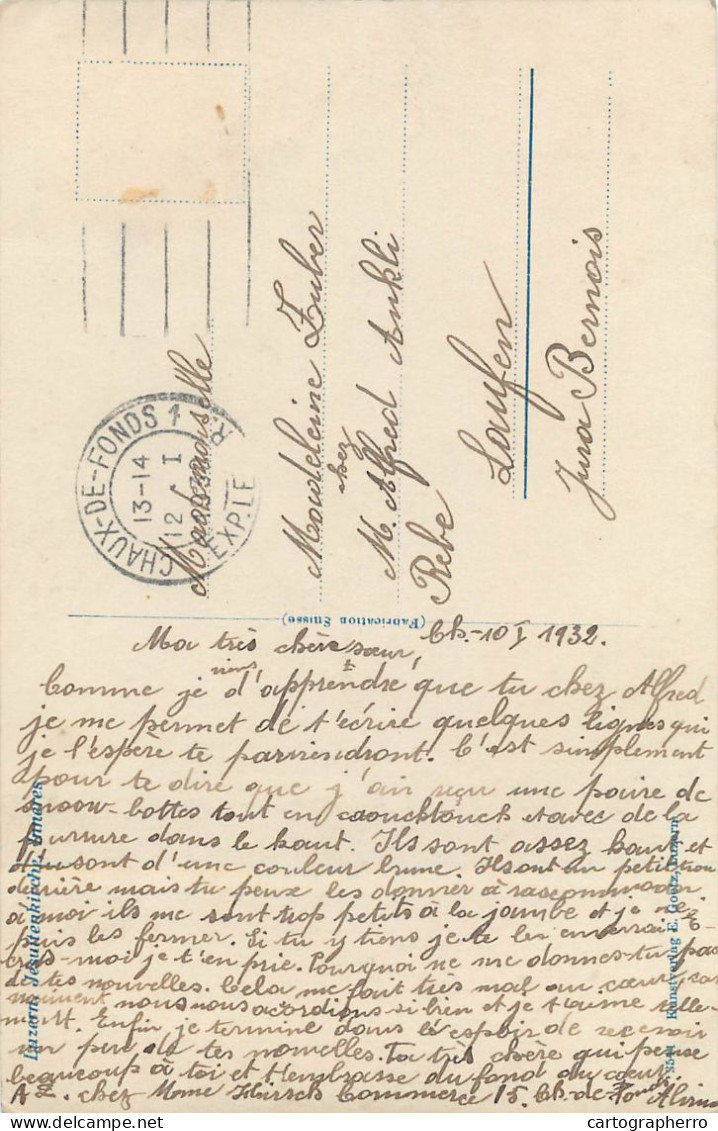 CHAUX-DE-FONDS 1
13-14
12 I
EXP. LE
Mademoiselle
Madeleine Zuber
chez
M. Alfred Ankli
Rebe
Laufen
Jura Bernois
(Fabrication Suisse)
Ch.-10 I 1932.
Ma très chère sœur,
viens
Comme je d'apprendre que tu chez Alfred
je me permet de t'écrire quelques lignes qui
je l'espère te parviendront. C'est simplement
pour te dire que j'ai reçu une paire de
snoow-bottes tout en caouchouck et avec de la
fourrure dans le haut. Ils sont assez haut et
sont d'une couleur brune. Ils ont un petit trou
derrière mais tu peux les donner à raccommoder
à moi ils me sont trop petits à la jambe et je ne
puis les fermer. Si tu y tiens je te les enverrai. É-
cris-moi je t'en prie. Pourquoi ne me donnes-tu pas
de tes nouvelles. Cela me fait très mal au cœur, car
nous nous accordions si bien et je t'aime telle-
ment. Enfin, je termine dans l'espoir de recevoir
un peu de tes nouvelles. Ta très chère qui pense
beaucoup à toi et t'embrasse du fond du cœur
A Z. chez Mme Hirsch Commerce 15. Ch. de Fonds
Luzern, Jesuitenkirche, Inneres
Kunstverlag E. Goetz, Luzern